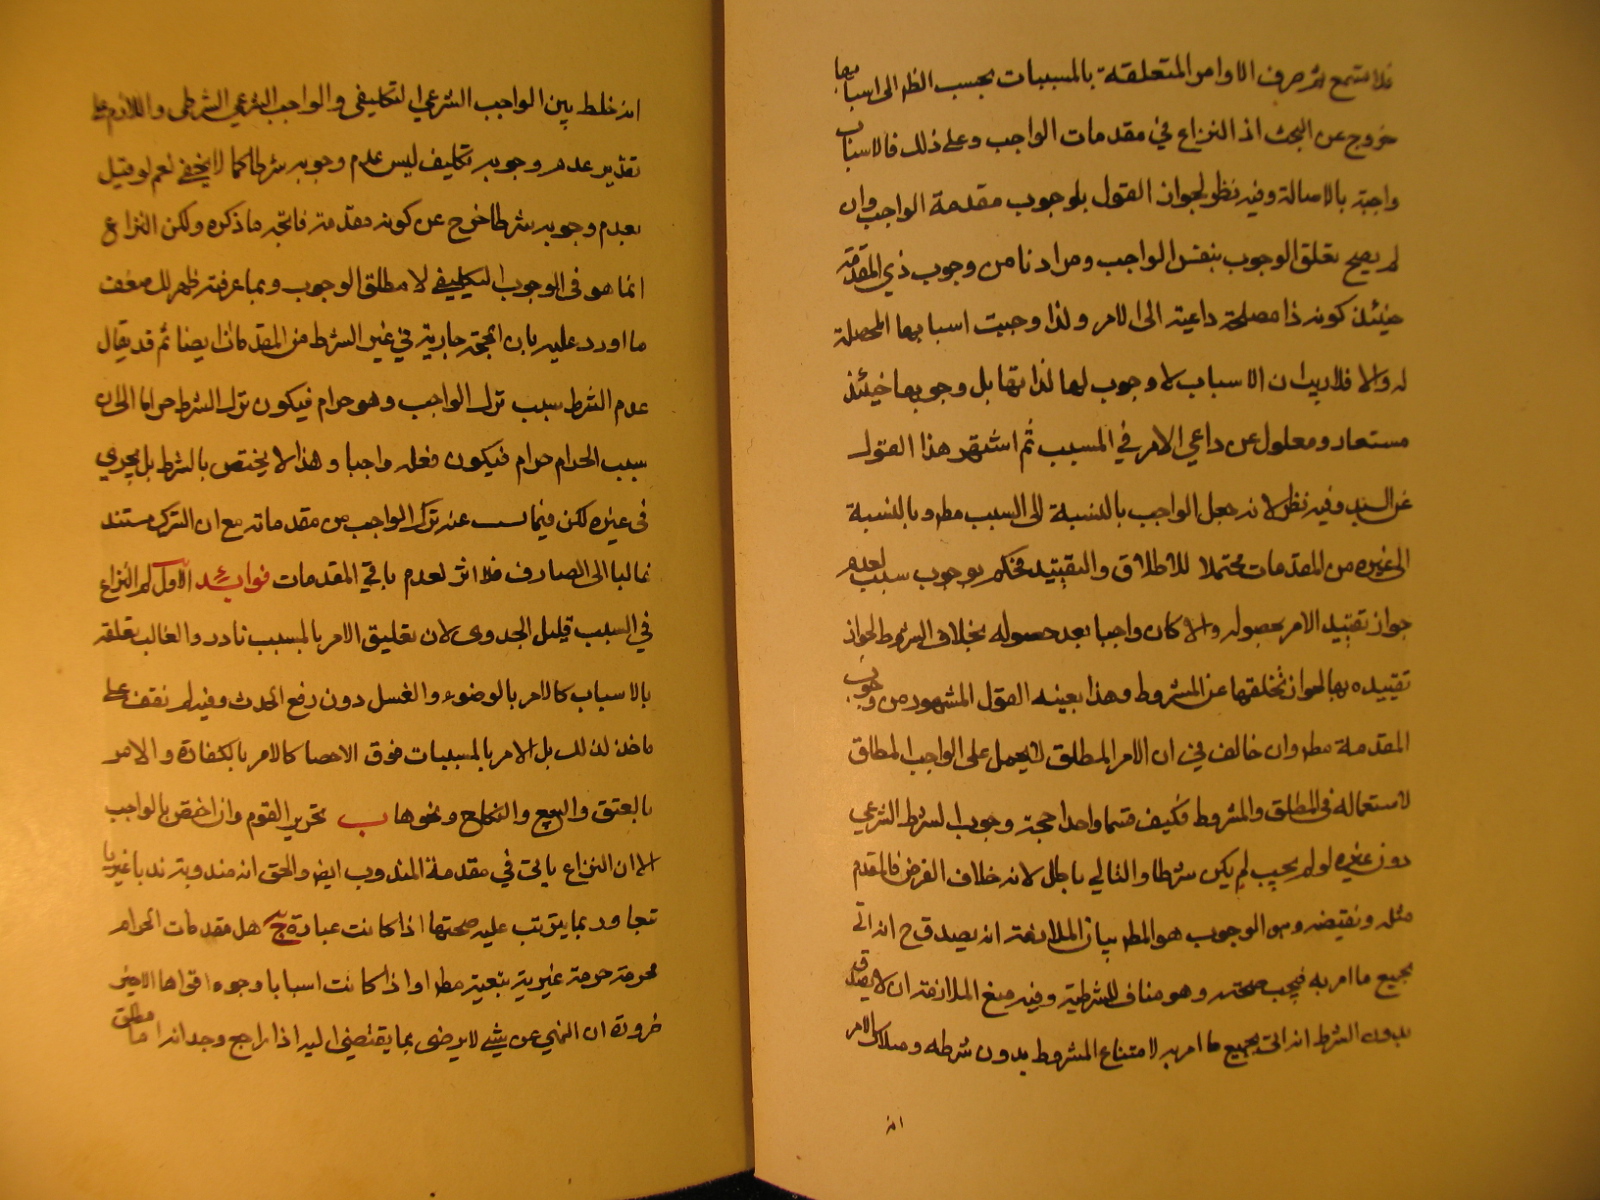 فلا تسمع ثم صرف الاوامر المتعلقة بالمسببات بحسب الظ الى اسبابها
خروج عن البحث اذ النزاع في مقدمات الواجب وعلى ذلك فالاسباب
واجبة بالاصالة وفيه نظر لجواز القول بلوجوب مقدمة الواجب وان
لم يصح تعلق الوجوب بنفس الواجب ومرادنا من وجوب ذي المقدمة
حينئذ كونه ذا مصلحة داعية الى الامر ولذا وجبت اسبابها المحصلة
له والا فلا ريب ان الاسباب لا وجوب لها لذاتها بل وجوبها حينئذ
مستعار ومعلول عن داعي الامر في المسبب ثم اشتهر هذا القول
عن السيد وفيه نظر لانه جعل الواجب بالنسبة الى السبب مط وبالنسبة
الى غيره من المقدمات محتملا للاطلاق والتقييد فحكم بوجوب سبب لعدم
جواز تقييد الامر بحصوله والا كان واجبا بعد حصوله بخلاف الشروط لجواز
تقييده بها لجواز تخلفها عن المشروط وهذا بعينه القول المشهور من وجوب
المقدمة مط وان خالف في ان الامر المطلق لا يحمل على الواجب المطلق
لاستعماله في المطلق والمشروط فكيف قسما واحدا حجة وجوب الشرط الشرعي
دون غيره لو لم يجب لم يكن شرطا والتالي باطل لانه خلاف الفرض فالمقدم
مثله ونقيضه وهو الوجوب هو المط بيان الملازمة انه يصدق ح انه اتى
بجميع ما امر به فيجب صحته وهو مناف للشرطية وفيه منع الملازمة ان لا يصدق
بدون الشرط انه اتى بجميع ما امر به لامتناع المشروط بدون شرطه وملاك الامر
انه
انه خلط بين الواجب الشرعي التكليفي والواجب الشرعي الشرطي واللازم على
تقدير عدم وجوبه تكليف ليس عدم وجوبه شرطا كما لا يخفى نعم لو قيل
بعدم وجوبه شرطا خرج عن كونه مقدمة فاتجه ما ذكره ولكن النزاع
انما هو في الوجوب التكليفي لا مطلق الوجوب وبما عرفت ظهر لك ضعف
ما اورد عليه بان الحجة جارية في غير الشرط من المقدمات ايضا ثم قد يقال
عدم الشرط سبب ترك الواجب وهو حرام فيكون ترك الشرط حراما الى ان
سبب الحرام حرام فيكون فعله واجبا وهذا لا يختص بالشرط بل يجري
في غيره لكن فيما عنه ترك الواجب من مقدماته مع ان الترك مستند
غالبا الى الصارف فلا اثر لعدم باقي المقدمات فوائد الاول النزاع
في السبب قليل الجدوى لان تعليق الامر بالمسبب نادر والغالب تعلقه
بالاسباب كالامر بالوضوء والغسل دون رفع الحدث وفيه لم نقف على
ماخذ لذلك بل الامر بالمسببات فوق الاحصا كالامر بالكفارة والامر
بالعتق والبيع والنكاح ونحوها ب تحرير القوم وان اختص بالواجب
الا ان النزاع ياتي في مقدمة المندوب ايض والحق انه مندوبة ندبا غيريا
بما يترتب عليه صحتها اذا كانت عبادة ج هل مقدمات الحرام
محرمة حرمة غيرية تبعية مط او اذا كانت اسبابا وجوه اقواها الاخير
ضرورة ان النهي عن شيء لا يرضى بما يقتضي اليه اذا راجع وجدانه اما مطلق